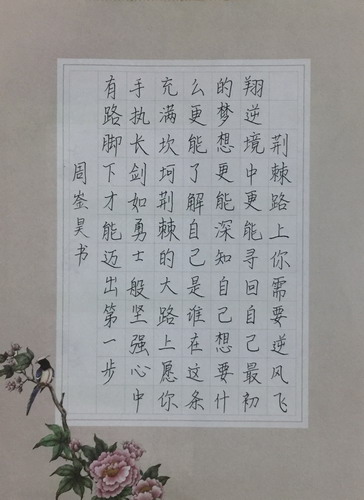 荆棘路上你需要逆风飞
翔逆境中更能寻回自己最初
的梦想更能深知自己想要什
么更能了解自己是谁在这条
充满坎坷荆棘的大路上愿你
手执长剑如勇士般坚强心中
有路脚下才能迈出第一步
周崟昊书